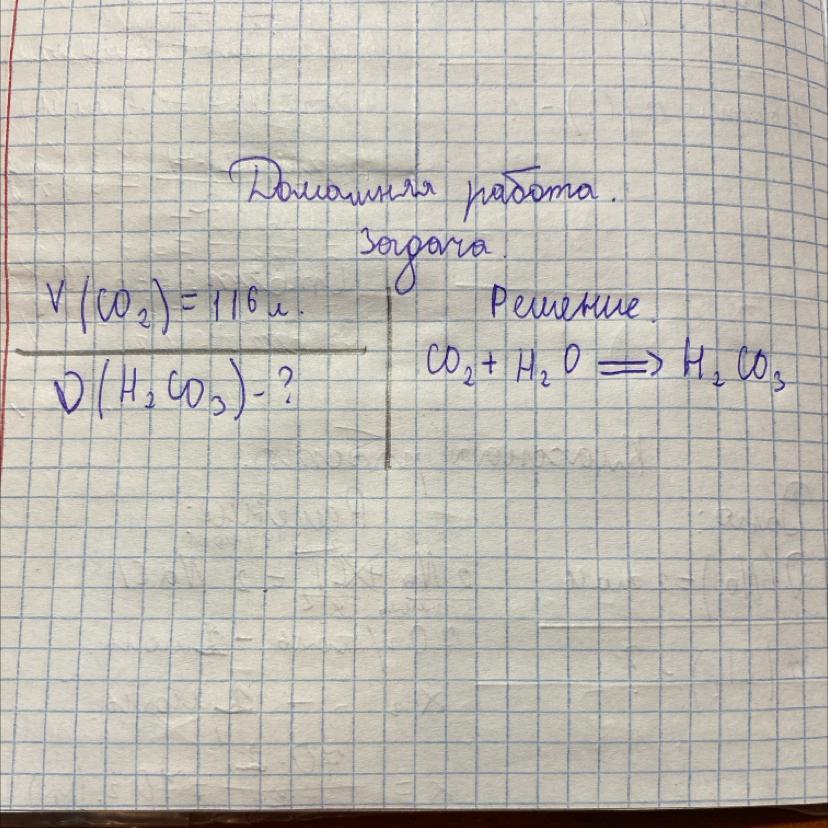 Домашняя работа.
Задача.
V(CO₂) = 116 л.
υ(H₂CO₃) - ?
Решение.
CO₂ + H₂O ⟹ H₂CO₃